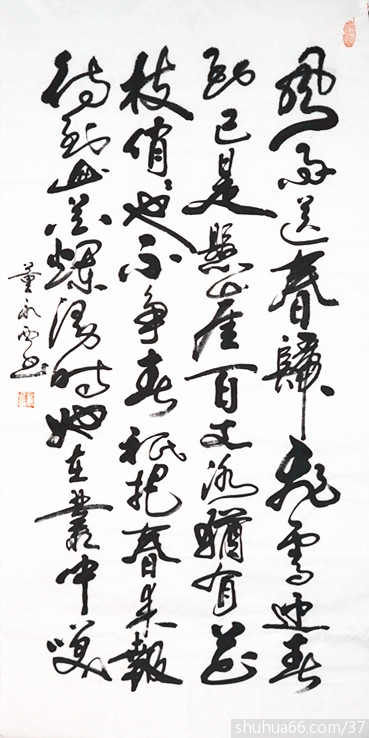 風雨送春歸飛雪迎春
到已是懸崖百丈冰猶有花
枝俏〻也不争春祇把春来報
待到山花爛漫時她在叢中咲
董永书
shuhua66.com/37